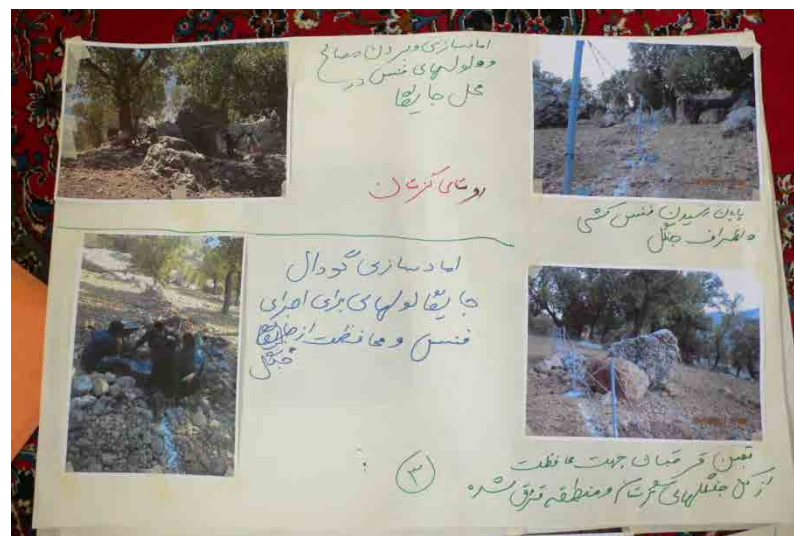 اماد سازی و بردن مصالح
و لولهای فنس در
محل جایقا
روستای گزستان
پایان رسیدن فنس کشی
و اطراف جنگل
اماد سازی گودال
جایقا لولهای برای اجرای
فنس و محافظت از
جنگل
تعیین قرقبان جهت محافظت
از کل جنگلهای و منطقه قرق شده
۳